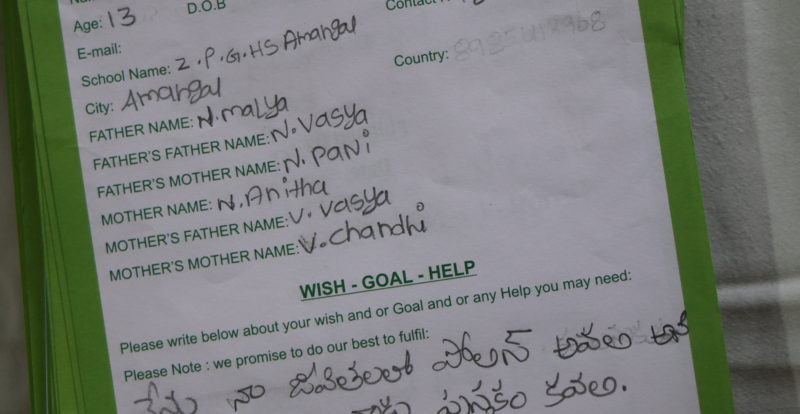 Age: 13 D.O.B Contact
E-mail:
School Name: Z.P.G.HS Amangal
Country:
City: Amangal
FATHER NAME: N.malya
FATHER'S FATHER NAME: N.vasya
FATHER'S MOTHER NAME: N.pani
MOTHER NAME: N.Anitha
MOTHER'S FATHER NAME: V.vasya
MOTHER'S MOTHER NAME: V.chandhi
WISH - GOAL - HELP
Please write below about your wish and or Goal and or any Help you may need:
Please Note : we promise to do our best to fulfil:
నేను నా జీవితలలో పోలీస్ అవలి
పుస్తకం కవలి.